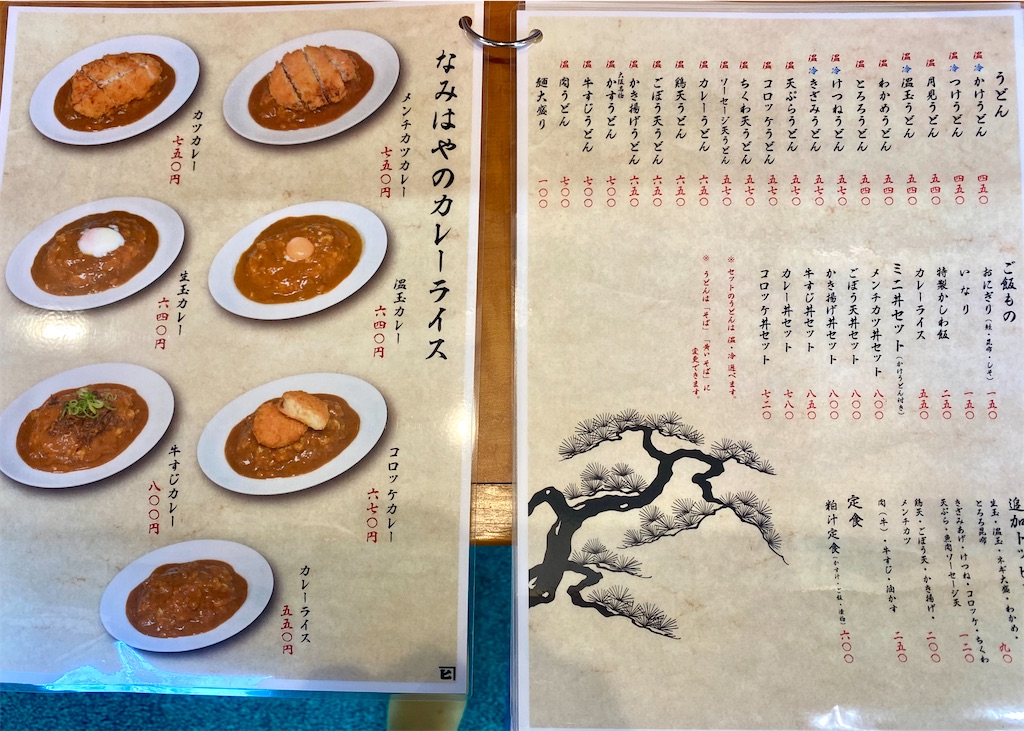 なみはやのカレーライス
メンチカツカレー
七五〇円
カツカレー
七五〇円
温玉カレー
六四〇円
生玉カレー
六四〇円
コロッケカレー
六七〇円
牛すじカレー
八〇〇円
カレーライス
五五〇円
うどん
温 冷 かけうどん 四五〇
温 冷 つけうどん 四五〇
温 月見うどん 五四〇
温 冷 温玉うどん 五四〇
温 わかめうどん 五四〇
温 とろろうどん 五四〇
温 冷 けつねうどん 五七〇
温 冷 きざみうどん 五七〇
温 天ぷらうどん 五七〇
温 コロッケうどん 五七〇
温 ちくわ天うどん 五七〇
温 ソーセージ天うどん 五七〇
温 カレーうどん 六五〇
温 鶏天うどん 六五〇
温 ごぼう天うどん 六五〇
温 かき揚げうどん 六五〇
温 大阪名物 かすうどん 七〇〇
温 牛すじうどん 七〇〇
温 肉うどん 七〇〇
麺大盛り 一〇〇
ご飯もの
おにぎり(鮭・昆布・しそ) 一五〇
いなり 一五〇
特製かしわ飯 二五〇
カレーライス 五五〇
ミニ丼セット(かけうどん付き)
メンチカツ丼セット 八〇〇
ごぼう天丼セット 八〇〇
かき揚げ丼セット 八〇〇
牛すじ丼セット 八五〇
カレー丼セット 七八〇
コロッケ丼セット 七二〇
※セットのうどんは 温・冷 選べます。
※うどんは「そば」「黄いそば」に
変更できます。
追加トッピ
生玉・温玉・ネギ大盛・わかめ・
とろろ昆布 九〇
きざみあげ・けつね・コロッケ・ちくわ
天ぷら・魚肉ソーセージ天 一二〇
鶏天・ごぼう天・かき揚げ・
メンチカツ 二〇〇
肉(牛)・牛すじ・油かす 二五〇
定食
粕汁定食(かす汁・ご飯・漬物) 六〇〇